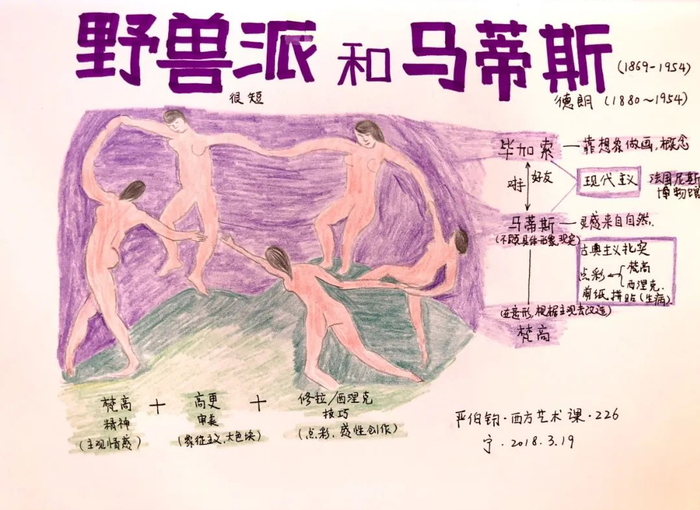 野兽派 和 马蒂斯
(1869-1954)
很短
德朗 (1880~1954)
毕加索 — 靠想象做画,概念
对手 好友
现代主义
法国尼斯
博物馆
马蒂斯 — 灵感来自自然.
(不脱具体形象,现实)
古典主义扎实
点彩
梵高
西涅克.
剪纸,拼贴(生病)
梵高
梵高
精神
(主观情感)
+
高更
审美
(象征主义,大色块)
+
修拉/西涅克
技巧
(点彩,感性创作)
严伯钧·西方艺术课·226
宁·2018.3.19